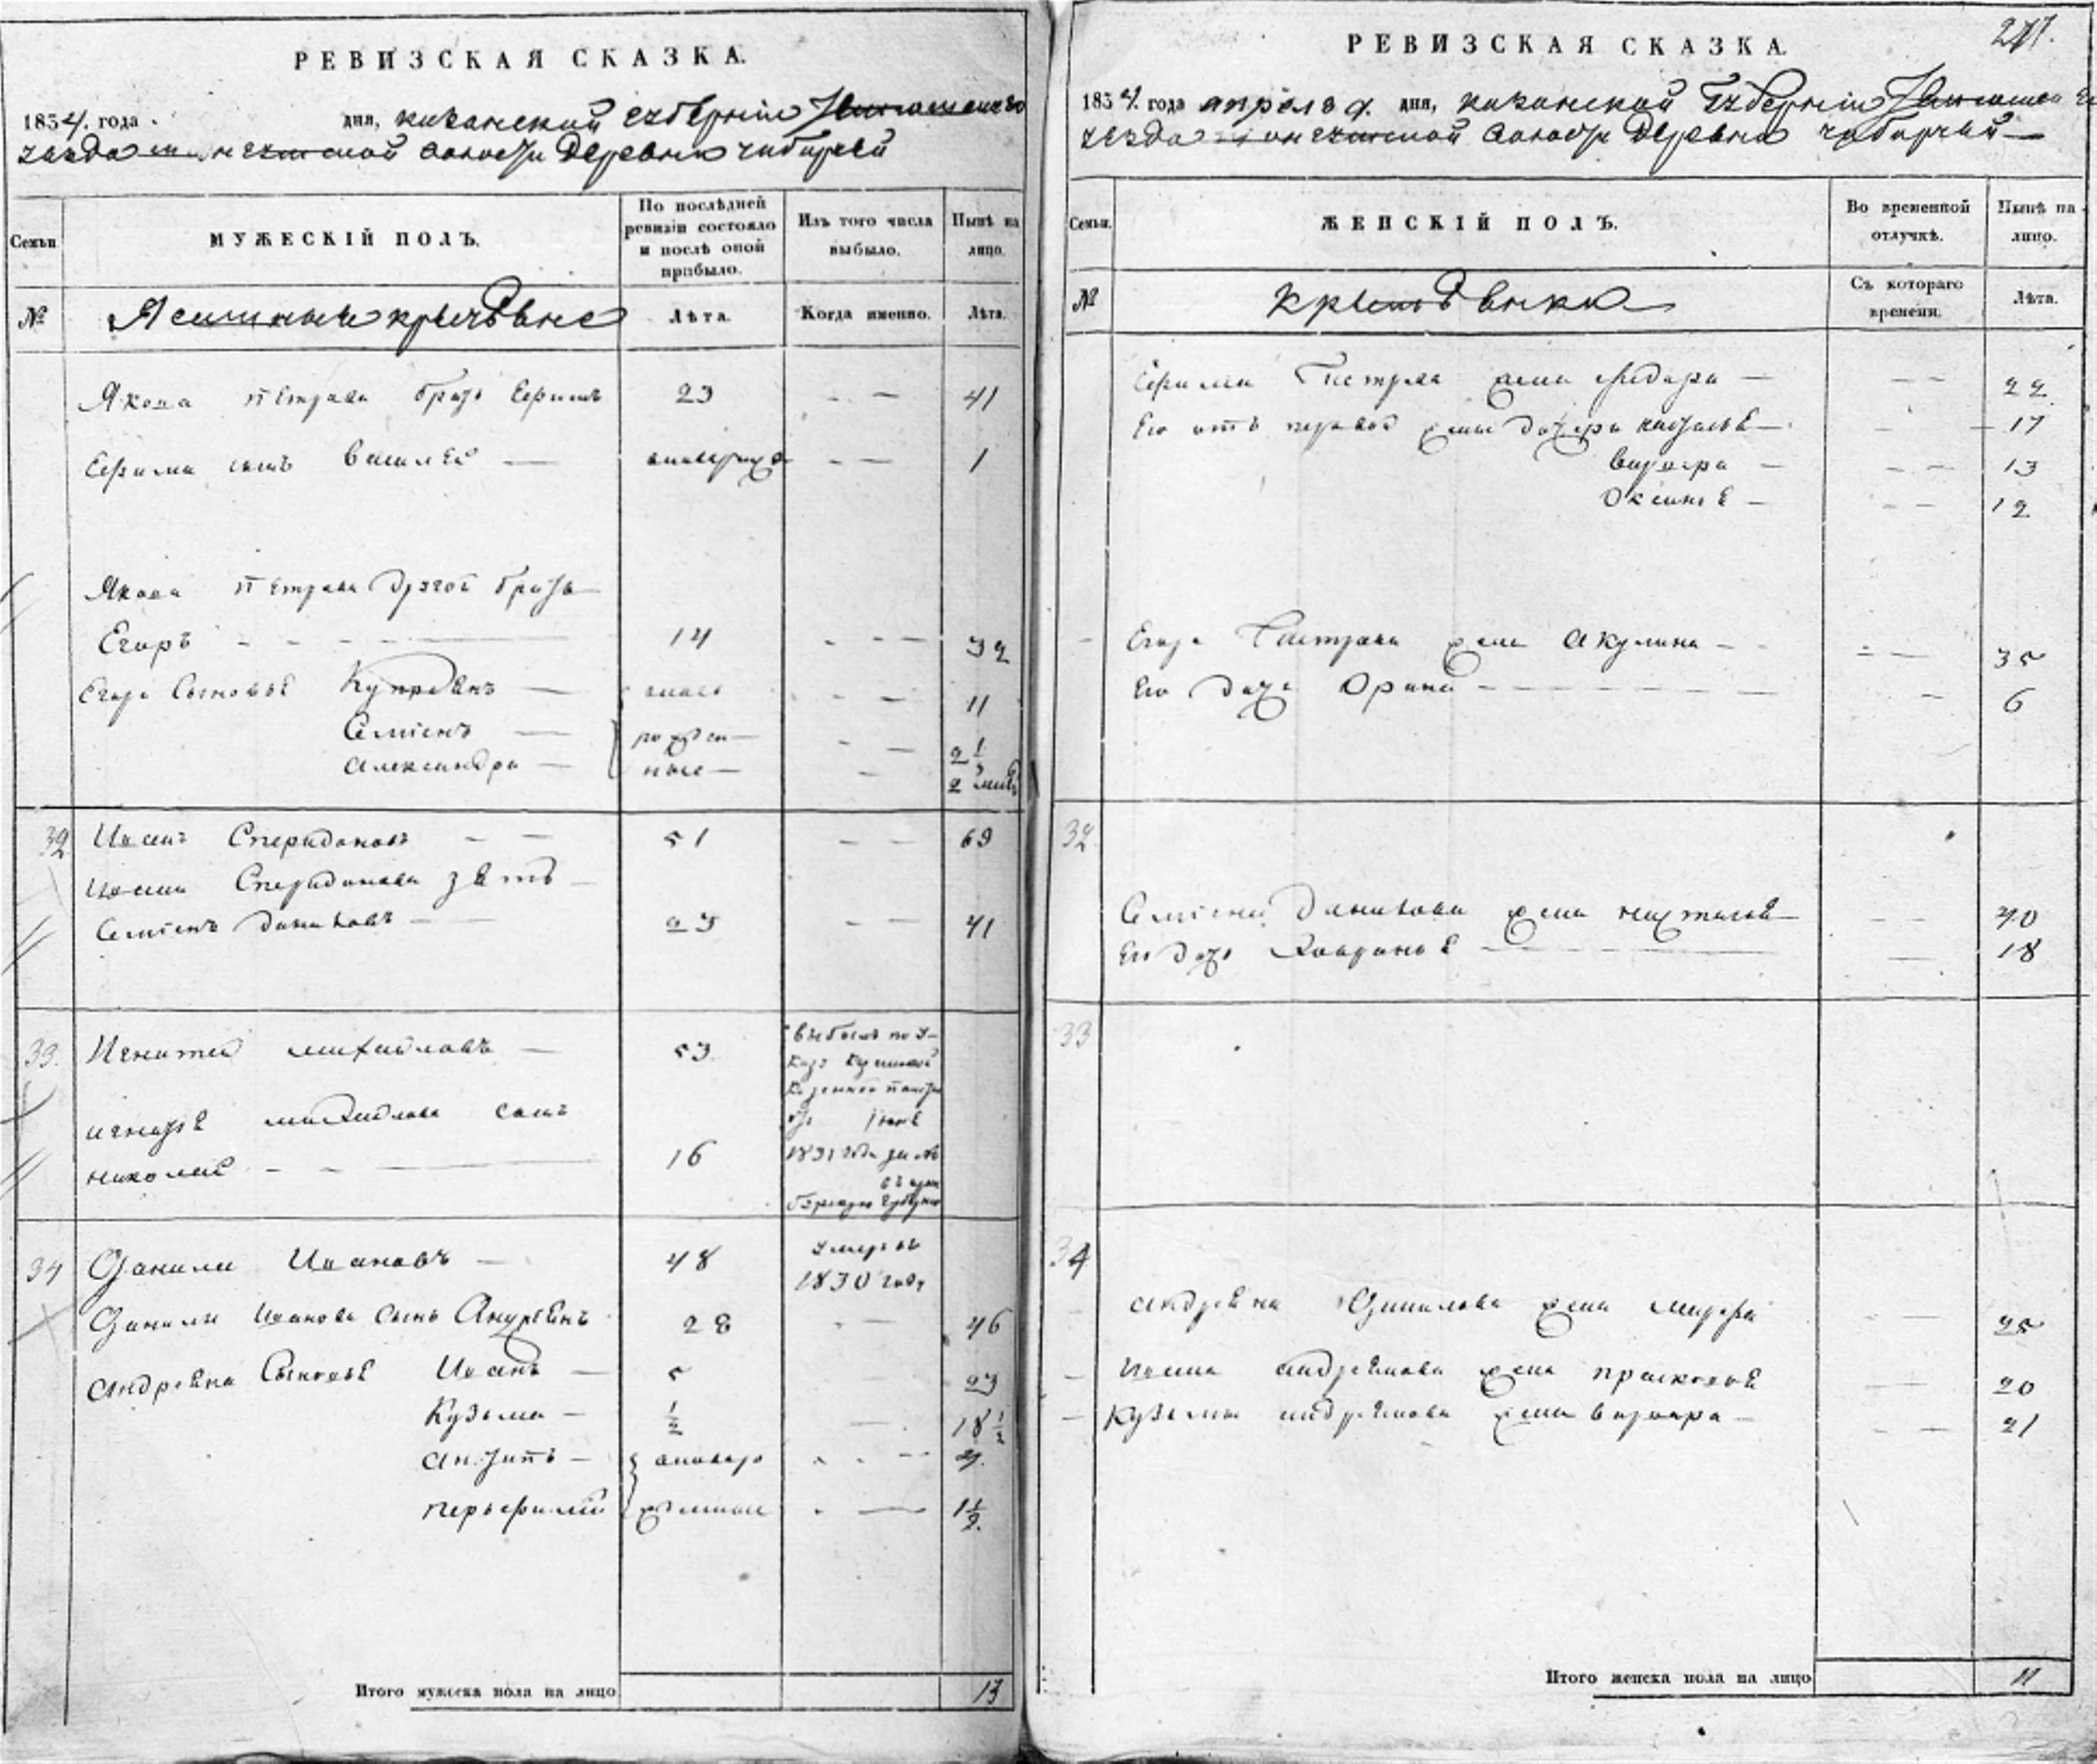 РЕВИЗСКАЯ СКАЗКА.
1834. года дня, казанской губернiи
уезда волости деревни чибирчей
Семьи.
МУЖЕСКІЙ ПОЛЪ.
По послѣдней ревизіи состояло и послѣ оной прибыло.
Изъ того числа выбыло.
Нынѣ на лицо.
№
Ясашные крестьяне
Лѣта.
Когда именно.
Лѣта.
Якова Петрова братъ Ефимъ 23 — — 41
Ефима сынъ Василей — — — 1
Якова Петрова другой братъ
Егоръ — — — 14 — — 32
Егора Сыновья Купреянъ — после — — 11
Семіонъ — рожден — — 2 1/2
Александра — ные — — 2 мѣс
32 Иванъ Спиридоновъ — — 51 — — 69
Ивана Спиридонова зять —
Семіонъ Даниловъ — — 23 — — 41
33. Игнатей михайловъ — 53
выбылъ по у-
казу
казенной палаты
1831 года за №
губернію
игнатья михайлова сынъ
николай — — — 16
34 Данила Ивановъ — 48 умеръ въ
1830 году
Данилы Иванова сынъ Андреянъ 28 — — 46
андреяна Сыновья Иванъ — 5 23
Кузьма — 1/2 — 18 1/2
антипъ — — —
перьфилей — 1 1/2.
Итого мужеска пола на лицо 13
271.
РЕВИЗСКАЯ СКАЗКА.
1834. года апреля дня, казанской Губерніи
уезда волости деревни чибирчей —
Семьи.
ЖЕНСКІЙ ПОЛЪ.
Во временной отлучкѣ.
Нынѣ на лицо.
№
крестьянки
Съ котораго времени.
Лѣта.
Ефима Петрова жена федора — — — 22
Его отъ первой жены дочери наталья — — — 17
варвара — — — 13
Оксинья — — — 12
Егора Петрова жена Акулина — — — 35
Его дочь Орина — — — — 6
32
Семіона Данилова жена настасья — — — 40
Его дочь Хавронья — — — 18
33
34
андреяна Данилова жена марфа — — 25
Ивана андреянова жена прасковья — 20
Кузьмы андреянова жена варвара — — — 21
Итого женска пола на лицо 11